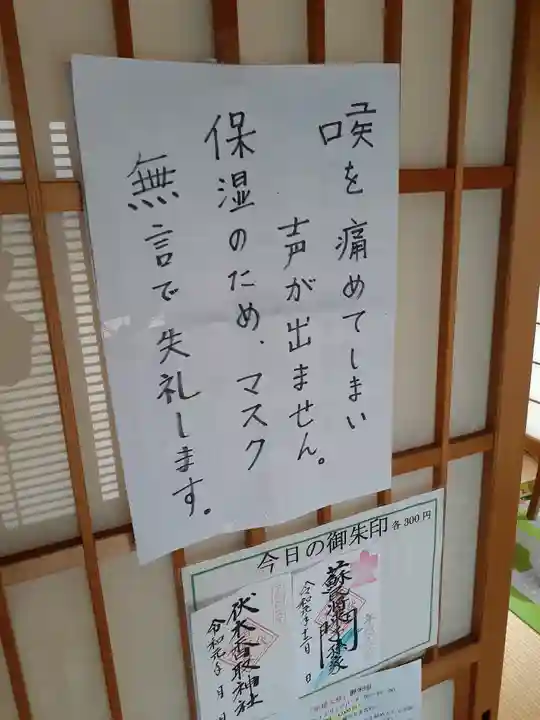 喉を痛めてしまい
声が出ません。
保湿のため、マスク
無言で失礼します。
今日の御朱印 各300円
蘇民将来子孫家
門
令和元年十二月 日
伏木香取神社
令和元年 月 日